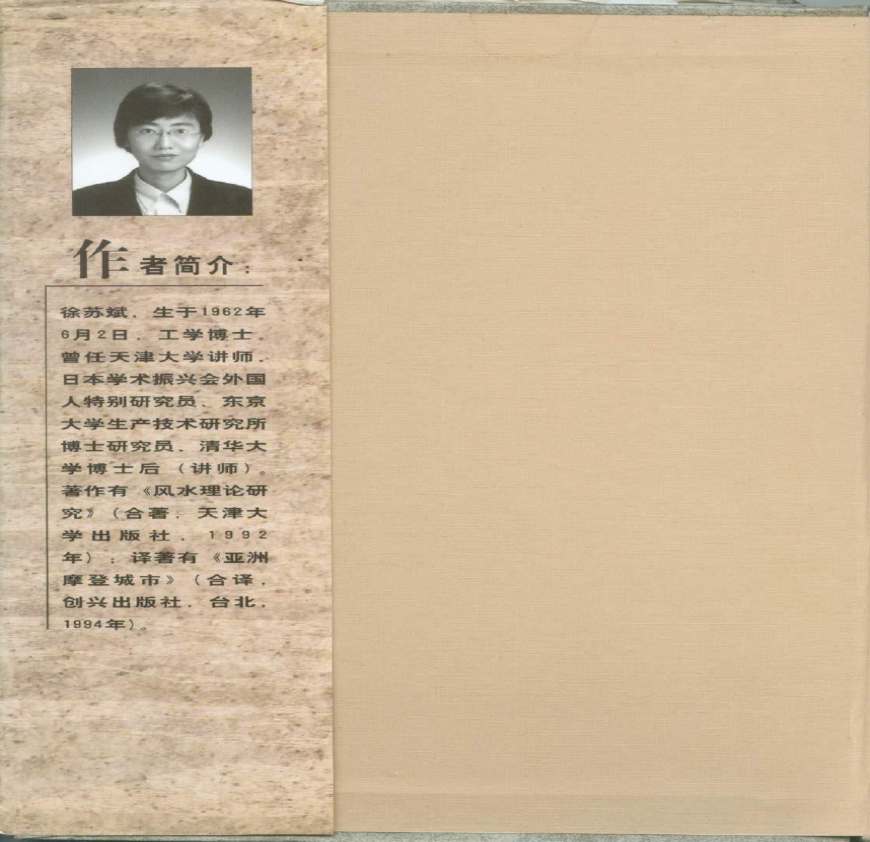 作者简介：
徐苏斌，生于1962年
6月2日，工学博士。
曾任天津大学讲师，
日本学术振兴会外国
人特别研究员、东京
大学生产技术研究所
博士研究员、清华大
学博士后（讲师）。
著作有《风水理论研
究》（合著，天津大
学出版社，1992
年）；译著有《亚洲
摩登城市》（合译，
创兴出版社，台北，
1994年）。